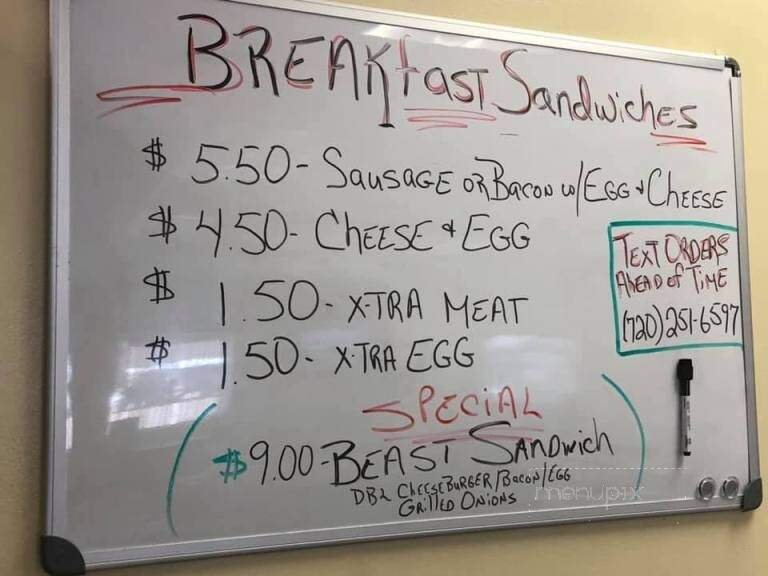 BREAKfAST SandwichES
$ 5.50 - SAUSAGE OR BACON w/ EGG + CHEESE
$ 4.50 - CHEESE + EGG
$ 1.50 - X-TRA MEAT
$ 1.50 - X-TRA EGG
TEXT ORDERS
AhEAD of TiME
(720) 251-6597
SPECiAL
$9.00 - BEAST SANDwich
DBL CHEESEBURGER/BACON/EGG
GRiLLED ONiONS
menupix